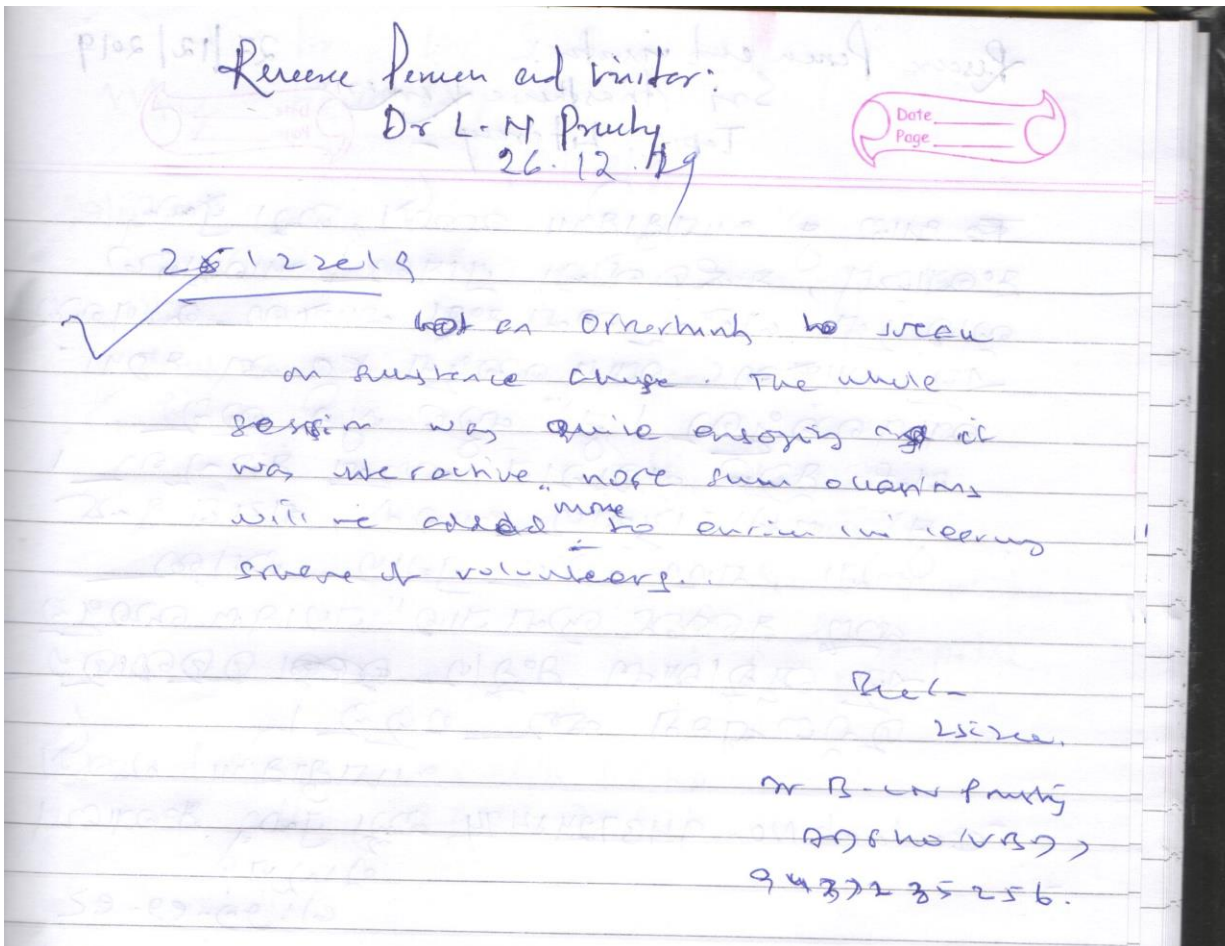 Person and visitor:
Dr L. N Prusty
26.12.19
Date
Page
26122019
Got an opportunity to speak
on substance abuse. The whole
session was quite enjoying as it
was interactive. more such occasions
will be added more to enrich the learning
sphere of volunteers.
Dr B. LN Prusty
ADPHO (VBD)
9437235256.